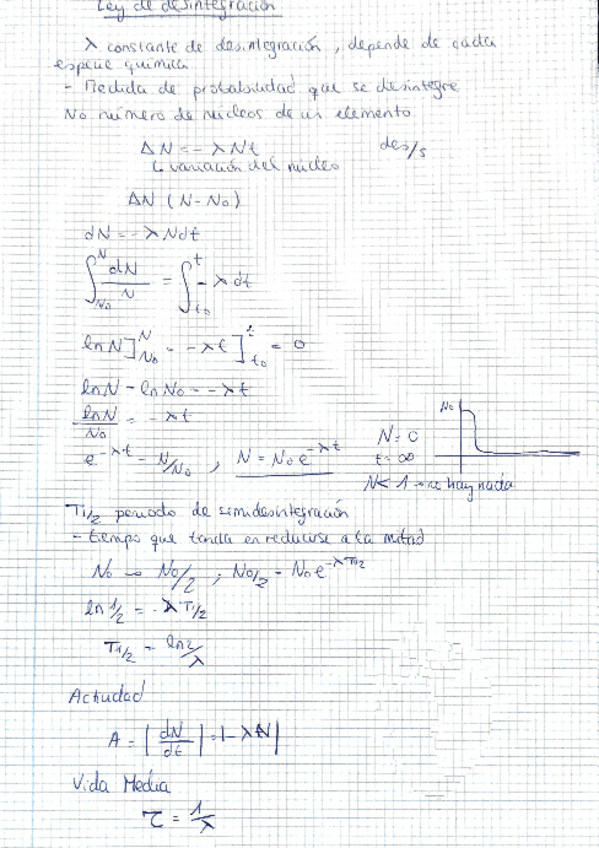 Ley de desintegración
λ constante de desintegración, depende de cada
especie química.
- Medida de probabilidad que se desintegre
No número de núcleos de un elemento
ΔN = - λ N t des/s
↳ variación del núcleo
ΔN (N - No)
dN = - λ N dt
∫_{No}^{N} dN/N = ∫_{to}^{t} - λ dt
ln N]_{No}^{N} = - λ t]_{to}^{t} = 0
ln N - ln No = - λ t
ln N/No = - λ t
e^{-λt} = N/No , N = No e^{-λt}
No
N = 0
t = ∞
N < 1 → no hay nada
T1/2 periodo de semidesintegración
- tiempo que tarda en reducirse a la mitad
No → No/2 ; No/2 = No e^{-λ T1/2}
ln 1/2 = - λ T1/2
T1/2 = ln 2/λ
Actividad
A = |dN/dt| = |- λ N|
Vida Media
τ = 1/λ